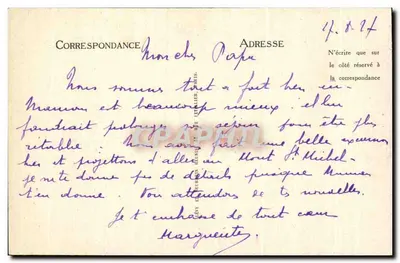 17.8.27
CORRESPONDANCE
ADRESSE
Mon cher Papa
N'écrire que sur
le côté réservé à
la correspondance
Nous sommes tout à fait bien ici
Maman et beaucoup mieux. il lui
faudrait prolonger son séjour pour être plus
rétablie. Nous avons fait une belle excursion
hier et projettons d'aller au Mont St Michel
je ne te donne pas de détails puisque Maman
t'en donne. Nous attendons de tes nouvelles.
Je t'embrasse de tout cœur
Marguerite